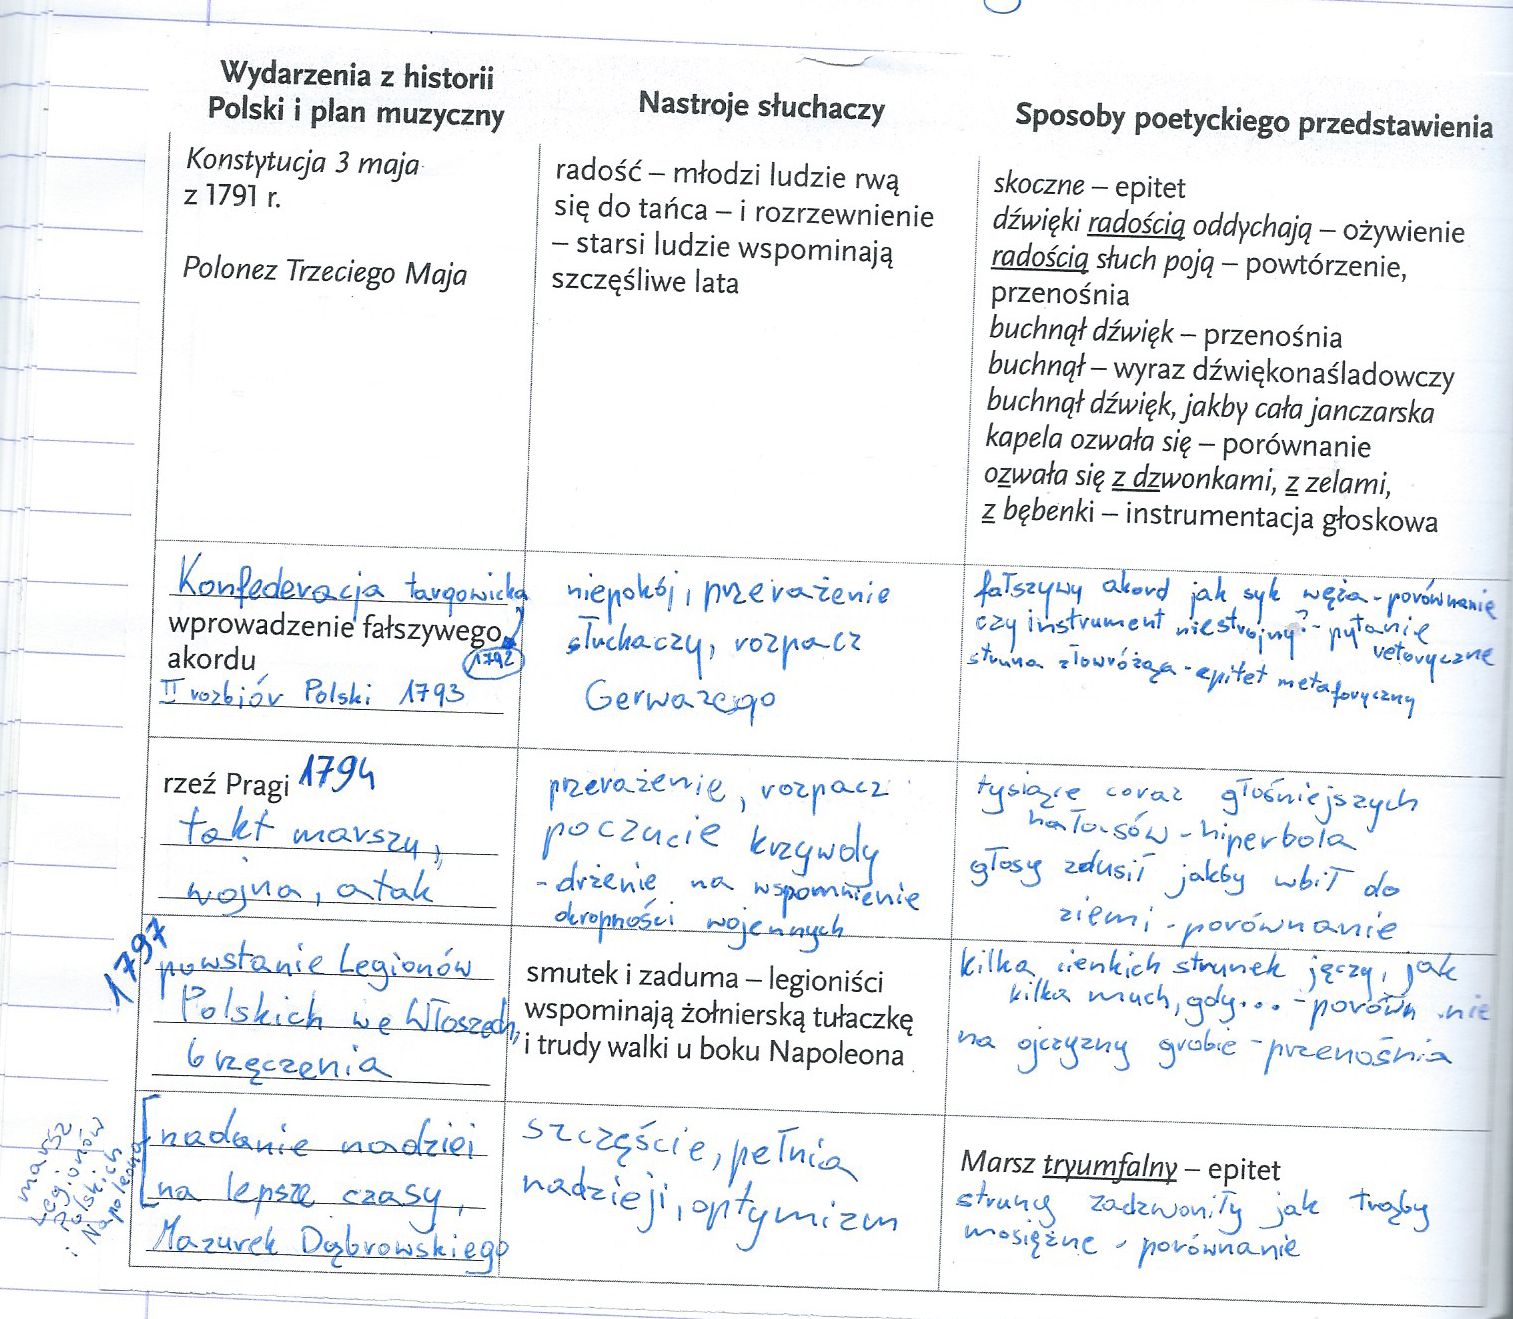 Wydarzenia z historii
Polski i plan muzyczny
Nastroje słuchaczy
Sposoby poetyckiego przedstawienia
Konstytucja 3 maja
z 1791 r.
Polonez Trzeciego Maja
radość – młodzi ludzie rwą
się do tańca – i rozrzewnienie
– starsi ludzie wspominają
szczęśliwe lata
skoczne – epitet
dźwięki radością oddychają – ożywienie
radością słuch poją – powtórzenie,
przenośnia
buchnął dźwięk – przenośnia
buchnął – wyraz dźwiękonaśladowczy
buchnął dźwięk, jakby cała janczarska
kapela ozwała się – porównanie
ozwała się z dzwonkami, z zelami,
z bębenki – instrumentacja głoskowa
Konfederacja targowicka
wprowadzenie fałszywego
akordu
1792
II rozbiór Polski 1793
niepokój, przerażenie
słuchaczy, rozpacz
Gerwazego
fałszywy akord jak syk węża - porównanie
czy instrument niestrojny? - pytanie
retoryczne
struna złowróżąca - epitet metaforyczny
rzeź Pragi 1794
takt marszu,
wojna, atak
przerażenie, rozpacz
poczucie krzywdy
- drżenie na wspomnienie
okropności wojennych
tysiące coraz głośniejszych
hałasów - hiperbola
głosy zdusił jakby wbił do
ziemi - porównanie
1797
powstanie Legionów
Polskich we Włoszech,
brzęczenia
smutek i zaduma – legioniści
wspominają żołnierską tułaczkę
i trudy walki u boku Napoleona
kilka cienkich strunek jęczy, jak
kilka much, gdy... - porówn .nie
na ojczyzny grobie - przenośnia
marsz
Legionów
Polskich
i Napoleona
nadanie nadziei
na lepsze czasy,
Mazurek Dąbrowskiego
szczęście, pełnia
nadzieji, optymizm
Marsz tryumfalny – epitet
struny zadzwoniły jak trąby
mosiężne - porównanie